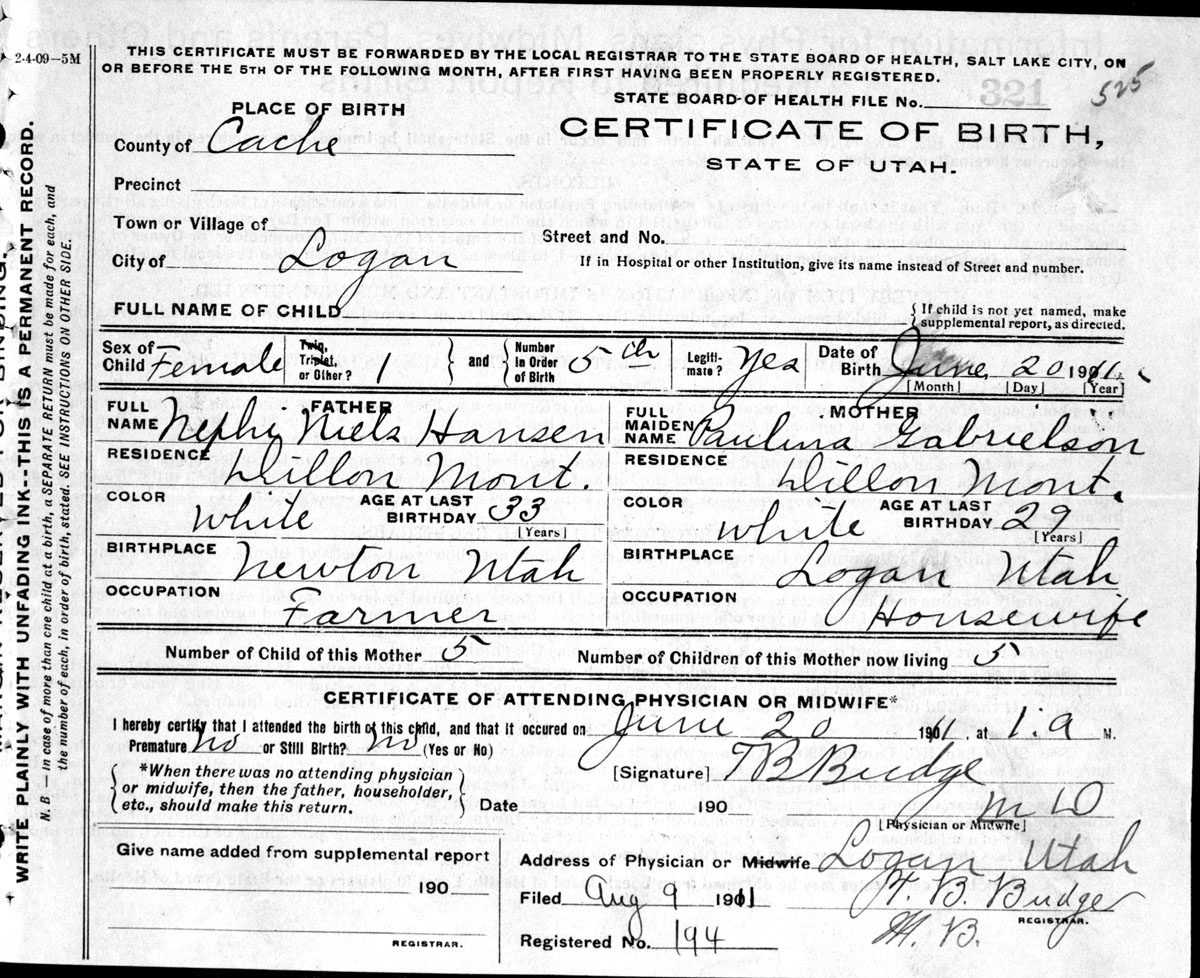 2-4-09—5M
THIS CERTIFICATE MUST BE FORWARDED BY THE LOCAL REGISTRAR TO THE STATE BOARD OF HEALTH, SALT LAKE CITY, ON
OR BEFORE THE 5TH OF THE FOLLOWING MONTH, AFTER FIRST HAVING BEEN PROPERLY REGISTERED.
STATE BOARD OF HEALTH FILE No. 321 525
PLACE OF BIRTH
CERTIFICATE OF BIRTH,
STATE OF UTAH.
County of Cache
Precinct
Town or Village of
Street and No.
City of Logan
If in Hospital or other Institution, give its name instead of Street and number.
FULL NAME OF CHILD
{If child is not yet named, make
supplemental report, as directed.
Sex of Child Female
Twin, Triplet, or Other? 1
and
Number in Order of Birth 5th
Legiti-mate? Yes
Date of Birth June 20 1911
[Month] [Day] [Year]
FATHER
FULL NAME Nephi Niels Hansen
RESIDENCE Dillon Mont.
COLOR White
AGE AT LAST BIRTHDAY 33
[Years]
BIRTHPLACE Newton Utah
OCCUPATION Farmer
MOTHER
FULL MAIDEN NAME Paulina Gabrielson
RESIDENCE Dillon Mont.
COLOR White
AGE AT LAST BIRTHDAY 29
[Years]
BIRTHPLACE Logan Utah
OCCUPATION Housewife
Number of Child of this Mother 5
Number of Children of this Mother now living 5
CERTIFICATE OF ATTENDING PHYSICIAN OR MIDWIFE*
I hereby certify that I attended the birth of this child, and that it occured on June 20 1911, at 1.a M.
Premature no or Still Birth? no (Yes or No)
*When there was no attending physician
or midwife, then the father, householder,
etc., should make this return.
[Signature] T B Budge
Date 190
M D
[Physician or Midwife]
Give name added from supplemental report
190
REGISTRAR.
Address of Physician or Midwife Logan Utah
Filed Aug 9 1911
T. B. Budge
REGISTRAR.
M. B.
Registered No. 194
WRITE PLAINLY WITH UNFADING INK--THIS IS A PERMANENT RECORD.
N. B — In case of more than one child at a birth, a SEPARATE RETURN must be made for each, and
the number of each, in order of birth, stated. SEE INSTRUCTIONS ON OTHER SIDE.